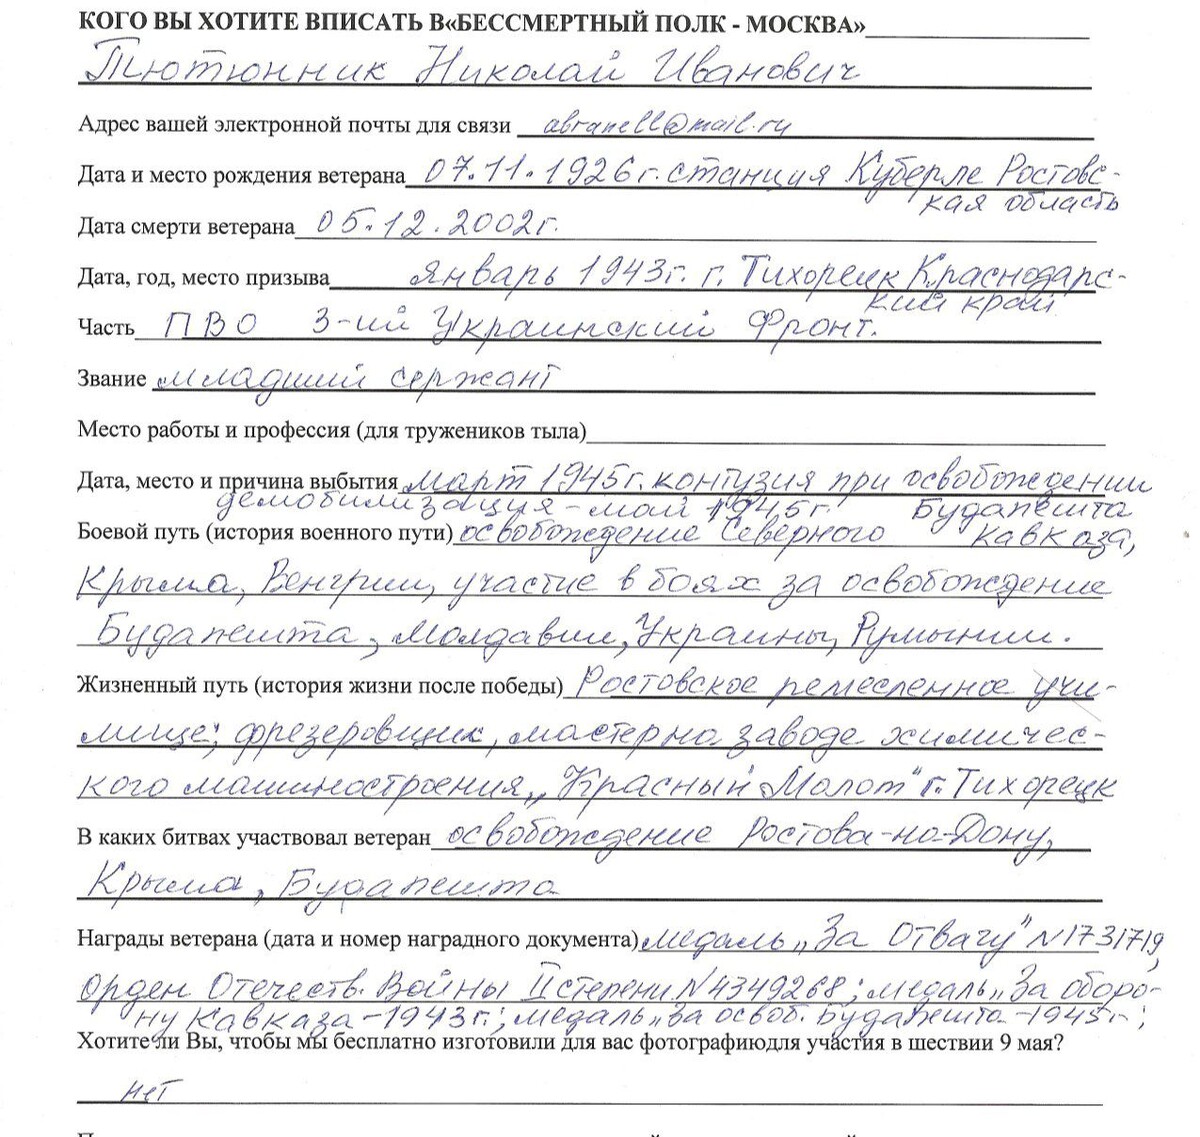 КОГО ВЫ ХОТИТЕ ВПИСАТЬ В«БЕССМЕРТНЫЙ ПОЛК - МОСКВА»
Тютюнник Николай Иванович
Адрес вашей электронной почты для связи abranell@mail.ru
Дата и место рождения ветерана 07.11.1926г. станция Куберле Ростовс-
кая область
Дата смерти ветерана 05.12.2002г.
Дата, год, место призыва январь 1943г. г. Тихорецк Краснодарс-
кий край
Часть ПВО 3-ий Украинский Фронт.
Звание младший сержант
Место работы и профессия (для тружеников тыла)
Дата, место и причина выбытия март 1945г. контузия при освобождении
демобилизация - май 1945г. Будапешта
Боевой путь (история военного пути) освобождение Северного Кавказа,
Крыма, Венгрии, участие в боях за освобождение
Будапешта, Молдавии, Украины, Румынии.
Жизненный путь (история жизни после победы) Ростовское ремесленное учи-
лище; фрезеровщик, мастер на заводе химичес-
кого машиностроения „Красный Молот" г. Тихорецк
В каких битвах участвовал ветеран освобождение Ростова-на-Дону,
Крыма, Будапешта
Награды ветерана (дата и номер наградного документа) медаль „За Отвагу" N1731719,
Орден Отечеств. Войны II степени N4349268; медаль „За оборо-
ну Кавказа - 1943г.; медаль „За освоб. Будапешта - 1945г.;
Хотите ли Вы, чтобы мы бесплатно изготовили для вас фотографиюдля участия в шествии 9 мая?
нет